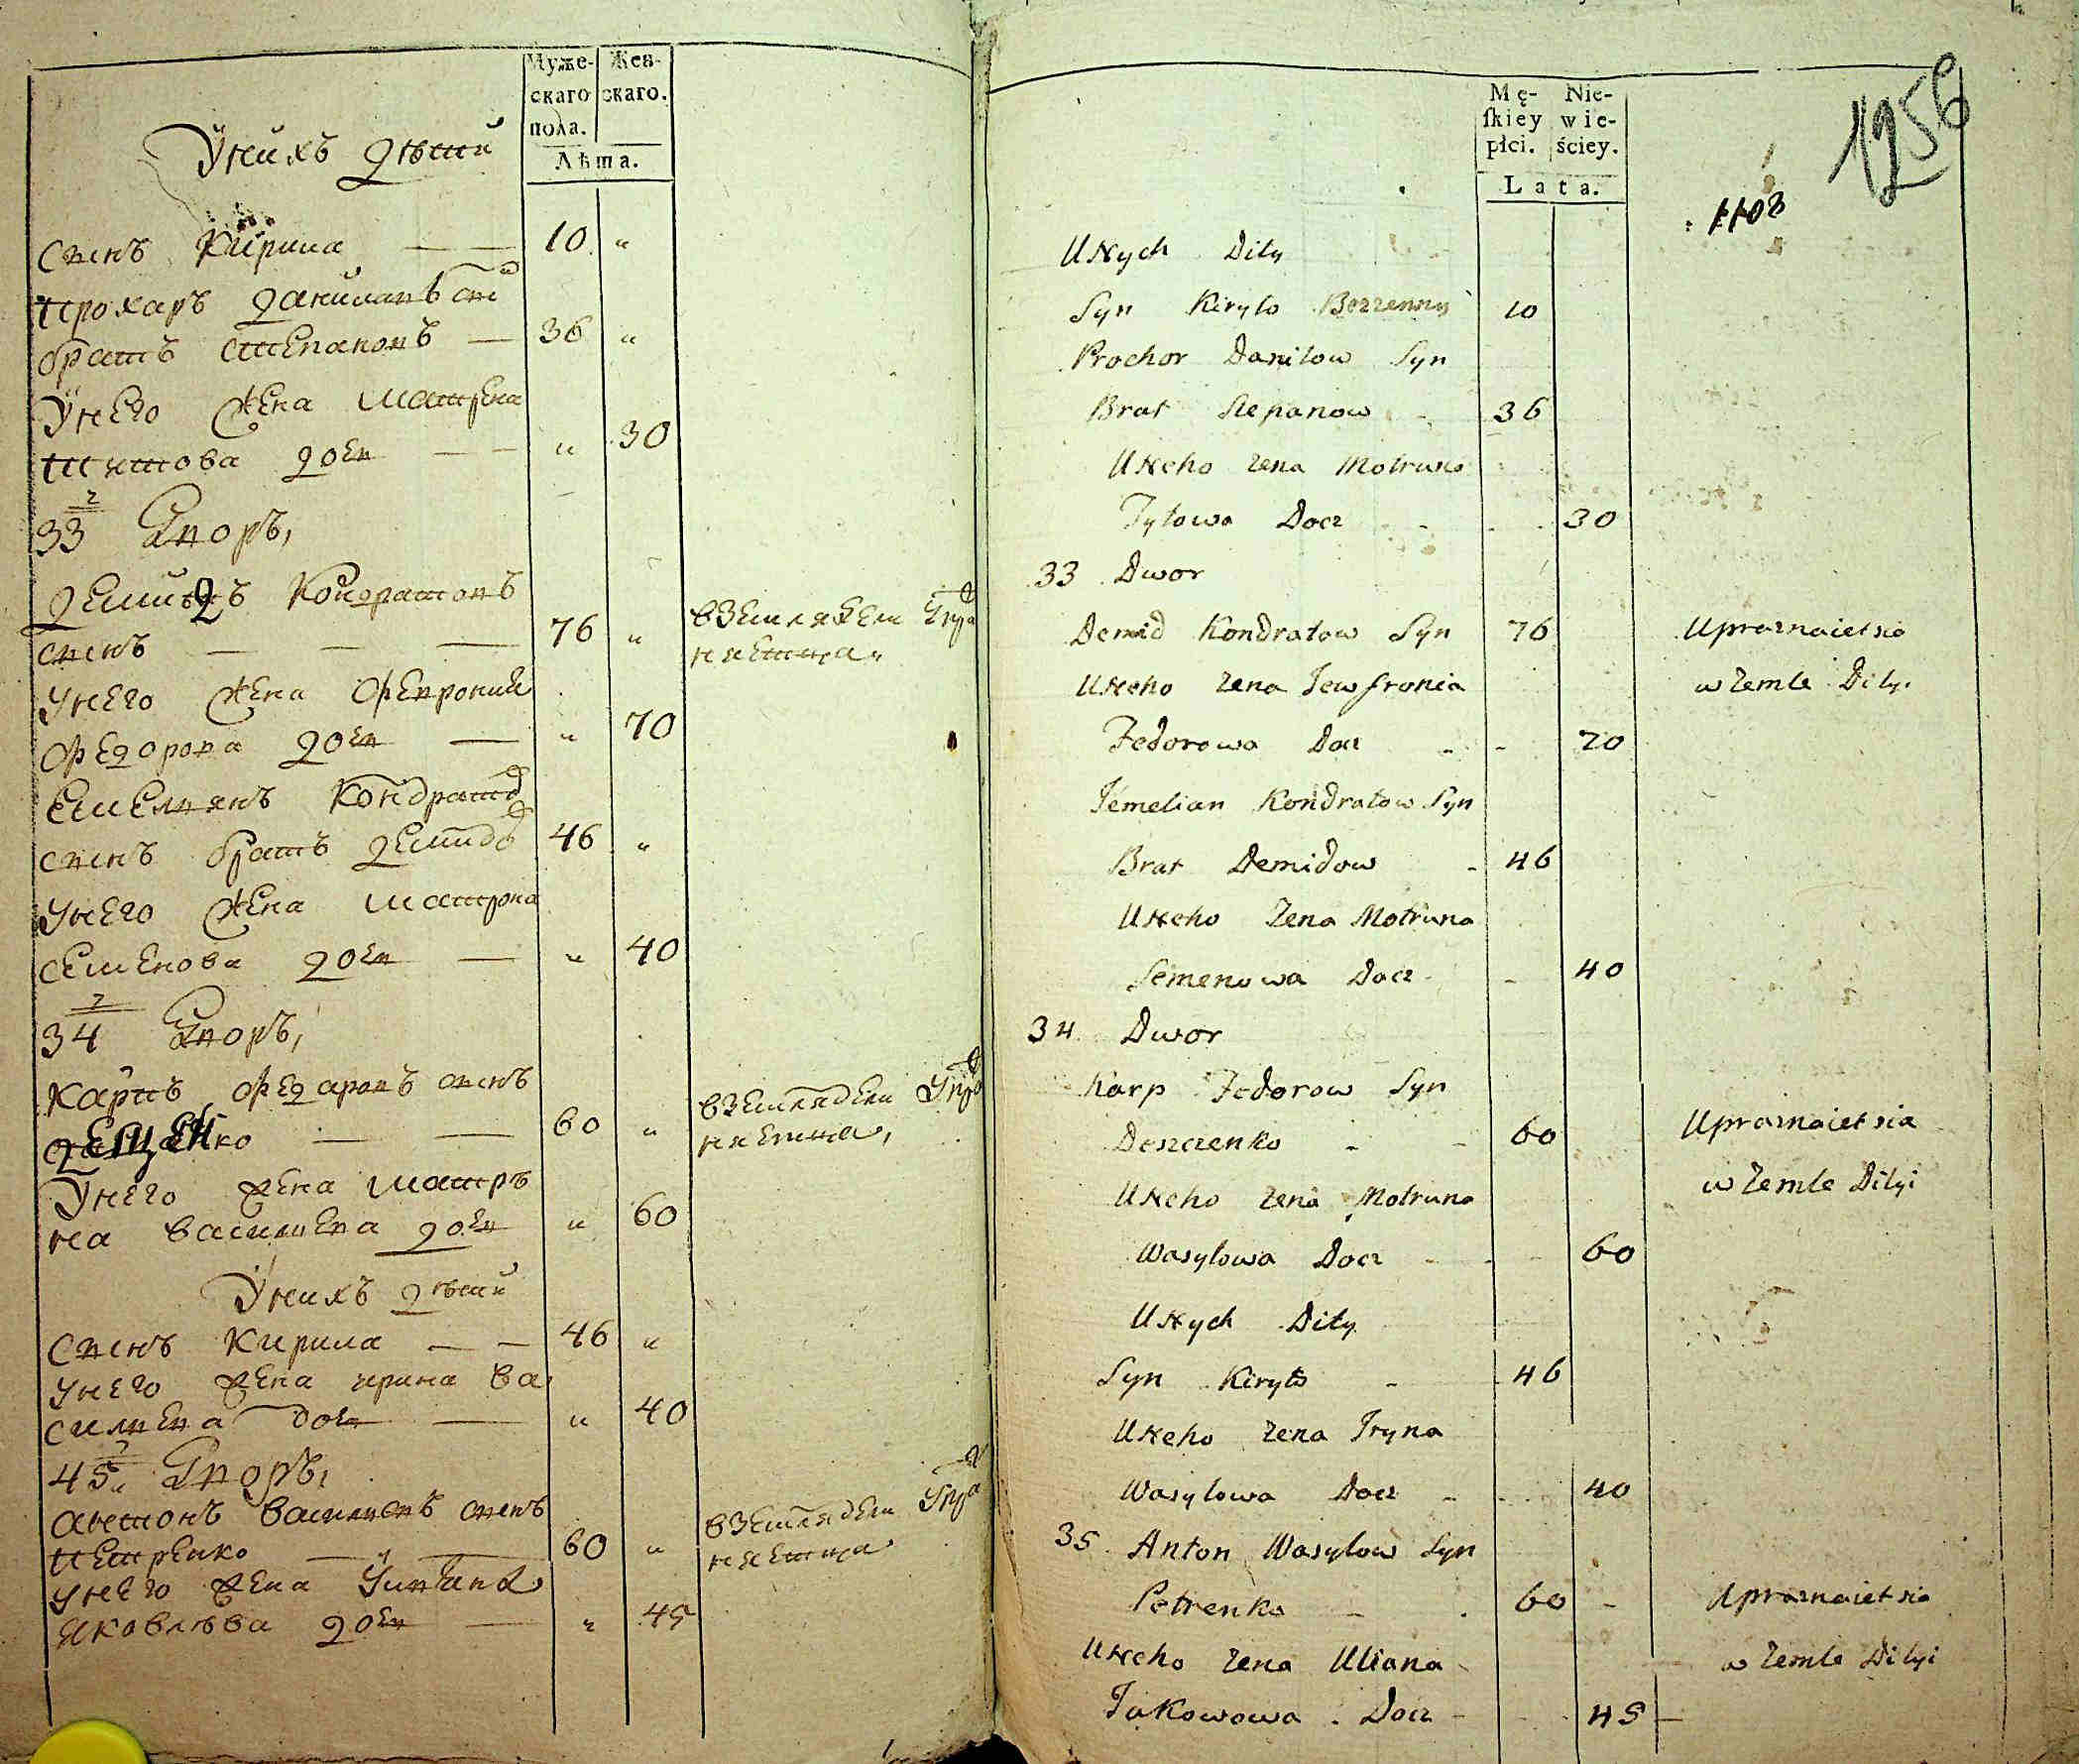 Муже-
скаго
пола.
Жен-
скаго.
Лѣта.
Унихъ дѣти
Синъ Кирила — — 10 "
Прохаръ Даниловъ син
братъ Степановъ — 36 "
Унего жена Матрена
Титова дочь — — " 30
33 Дворъ,
Демидъ Кондратовъ
синъ — — — 76 "
вземледелии упра
жняетца,
Унего жена Феврония
Федорова дочь — " 70
Емелянъ Кондратов
синъ братъ Демидов 46 "
Унего жена Матрона
Семенова дочь — " 40
34 Дворъ,
Карпъ Федаровъ синъ
Дещенко — — 60 "
вземледели упра
жняетца,
Унего жена Матро
на Василиева дочь " 60
Унихъ дѣти
Синъ Кирила — — 46 "
Унего жена ирина Ва
силиева дочь — " 40
45 Дворъ,
Антонъ Василиевъ синъ
Петренко — — 60 "
вземледели упра
жняетца
Унего жена Улиана
Яковлѣва дочь — " 45
Mę-
skiey
płci.
Nie-
wie-
ściey.
Lata.
1256
1102
UNych Dity
Syn Kiryło Bezzenny 10
Prochor Daniłow Syn
Brat Stepanow - 36
UNeho zena Motruna
Tytowa Docz - - 30
33 Dwor
Demid Kondratow Syn 76
Upraznaietsia
w Zemle Dily.
UNeho zena Jewfronia
Fedorowa Docz - - 70
Jemelian Kondratow Syn
Brat Demidow - 46
UNeho Zena Motruna
Semenowa Docz - - 40
34 Dwor
Karp Fedorow Syn
Deszczenko - - 60
Upraznaietsia
w Zemle Dilyi
UNeho zena Motruna
Wasylowa Docz - - - 60
UNych Dity
Syn Kiryło - 46
UNeho zena Iryna
Wasylowa Docz - - 40
35 Anton Wasylow Syn
Petrenko - . 60 -
Upraznaietsia
w Zemle Dilyi
UNeho zena Uliana
Jakowowa . Docz - - 45 -